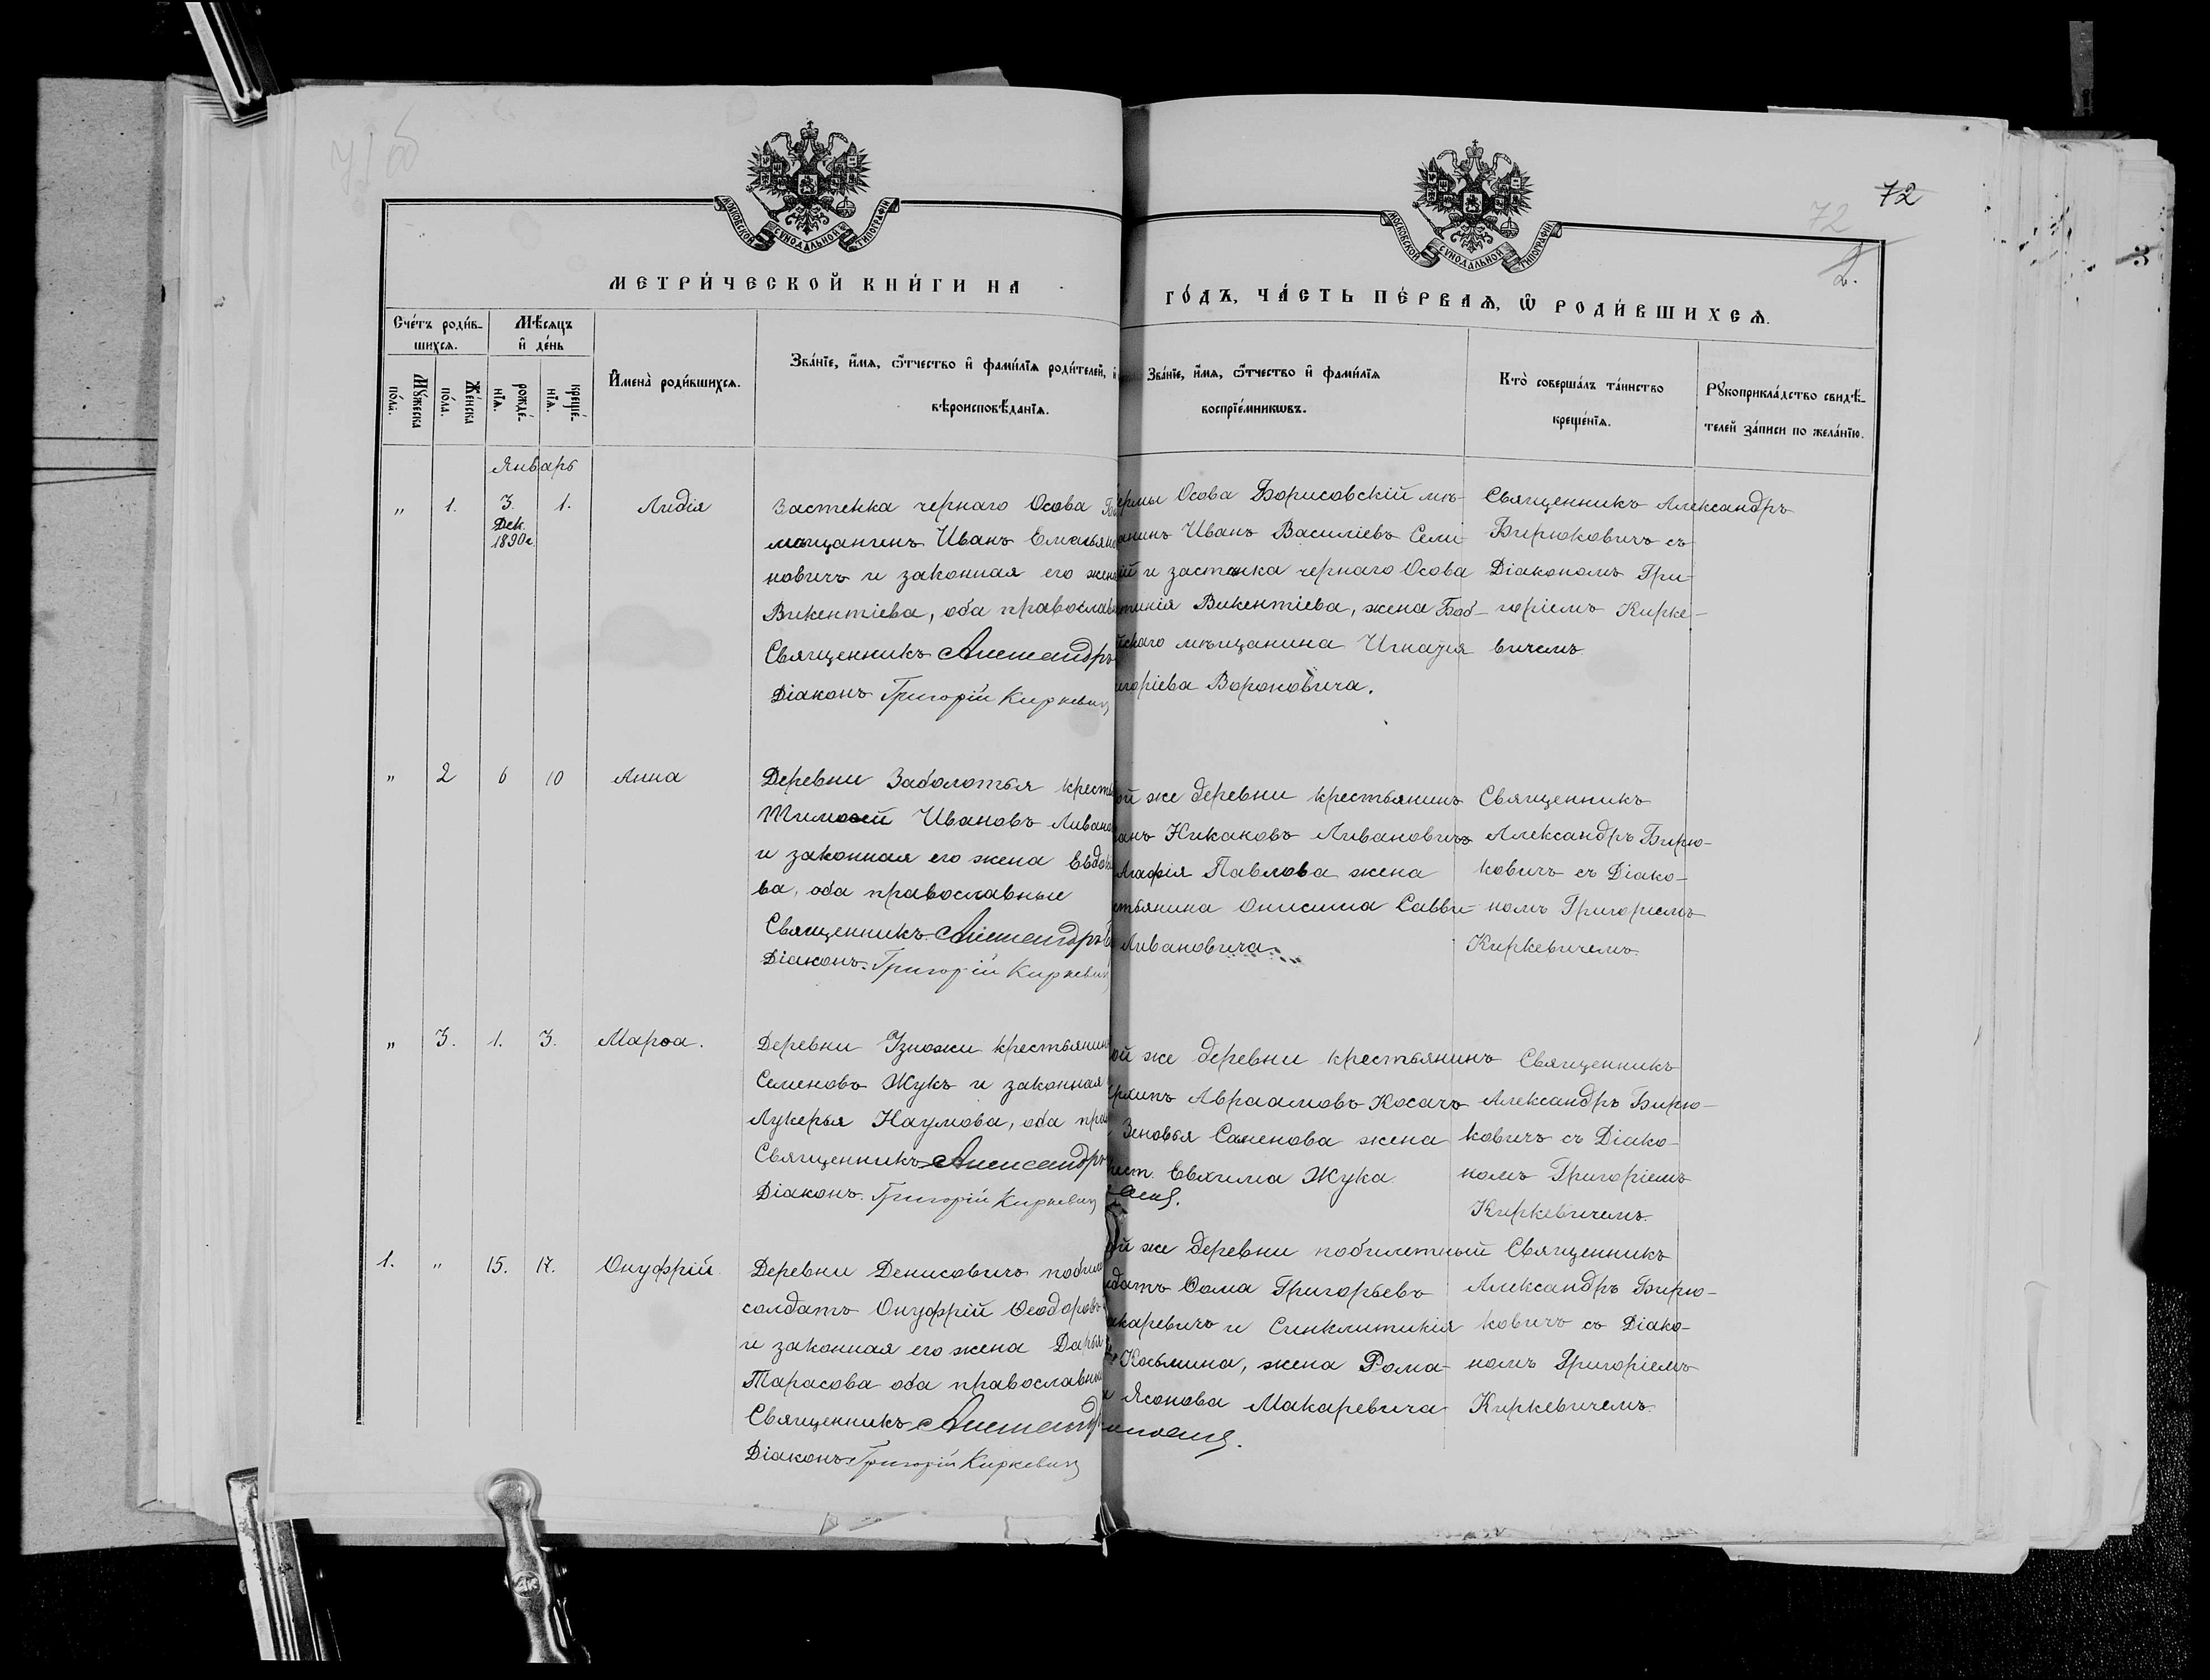 71об
72
72
2.
3
МОСКОВСКОЙ СѴНОДАЛЬНОЙ ТИПОГРАФІИ
МОСКОВСКОЙ СѴНОДАЛЬНОЙ ТИПОГРАФІИ
МЕТРИ́ЧЕСКОЙ КНИ́ГИ НА
ГО́ДЪ, ЧА́СТЬ ПЕ́РВАѦ, Ѡ҆ РОДИ́ВШИХСѦ.
Сче́тъ роди́в-
шихсѧ.
Мѣ́сѧцъ
и҆ де́нь
Мꙋ́жеска
по́ла.
Же́нска
по́ла.
рожде́-
нїѧ.
креще́-
нїѧ.
И҆мена̀ роди́вшихсѧ.
Зва́нїе, и҆́мѧ, ѻ҆́тчество и҆ фами́лїѧ роди́телей,
вѣроисповѣ́данїѧ.
Зва́нїе, и҆́мѧ, ѻ҆́тчество и҆ фами́лїѧ
воспрїе́мникѡвъ.
Кто̀ соверша́лъ та́инство
креще́нїѧ.
Рꙋкоприкла́дство свидѣ́-
телей за́писи по жела́нїю.
Январь
„ 1. 3. 1. Лидія
Дек.
1890г.
Застенка чернаго Осова
мѣщанинъ Иванъ Емельян
новичъ и законная его жен
Викентіева, оба православ
Священникъ Александръ
Діаконъ Григорій Киркевич
ермы Осова Борисовскій мѣ-
анинъ Иванъ Василіевъ Семи
ій и застенка чернаго Осова
тинія Викентіева, жена Боб-
йскаго мѣщанина Игнатія
игоріева Вороновича.
Священникъ Александръ
Бирюковичъ съ
Діакономъ Гри-
горіемъ Кирке-
вичемъ
„ 2 6 10 Анна
Деревни Заболотья кресть
Тимоѳей Ивановъ Ливано
и законная его жена Евдок
ва, оба православные
Священникъ Александръ
Діаконъ Григорій Киркевич
ой же деревни крестьянинъ
анъ Никаковъ Ливановичъ
Агафія Павлова жена
стьянина Онисима Савви-
Ливановича.
Священникъ
Александръ Бирю-
ковичъ съ Діако-
номъ Григоріемъ
Киркевичемъ.
„ 3. 1. 3. Марѳа.
Деревни Узножи крестьянинъ
Семеновъ Жукъ и законная
Лукерья Наумова, оба прав
Священникъ Александръ
Діаконъ Григорій Киркевич
ой же деревни крестьянинъ
Авраамовъ Косачъ
Зеновья Семенова жена
ст. Евхима Жука.
Священникъ
Александръ Бирю-
ковичъ съ Діако-
номъ Григоріемъ
Киркевичемъ.
1. „ 15. 17. Онуфрій.
Деревни Денисовичъ побил
солдатъ Онуфрій Ѳеодоровъ
и законная его жена Дарья
Тарасова оба православны
Священникъ Александръ
Діаконъ Григорій Киркевич
ой же деревни побилетный
лдатъ Ѳома Григорьевъ
акаревичъ и Синклитикія
Косьмина, жена Рома-
Ясонова Макаревича
Священникъ
Александръ Бирю-
ковичъ съ Діако-
номъ Григоріемъ
Киркевичемъ.